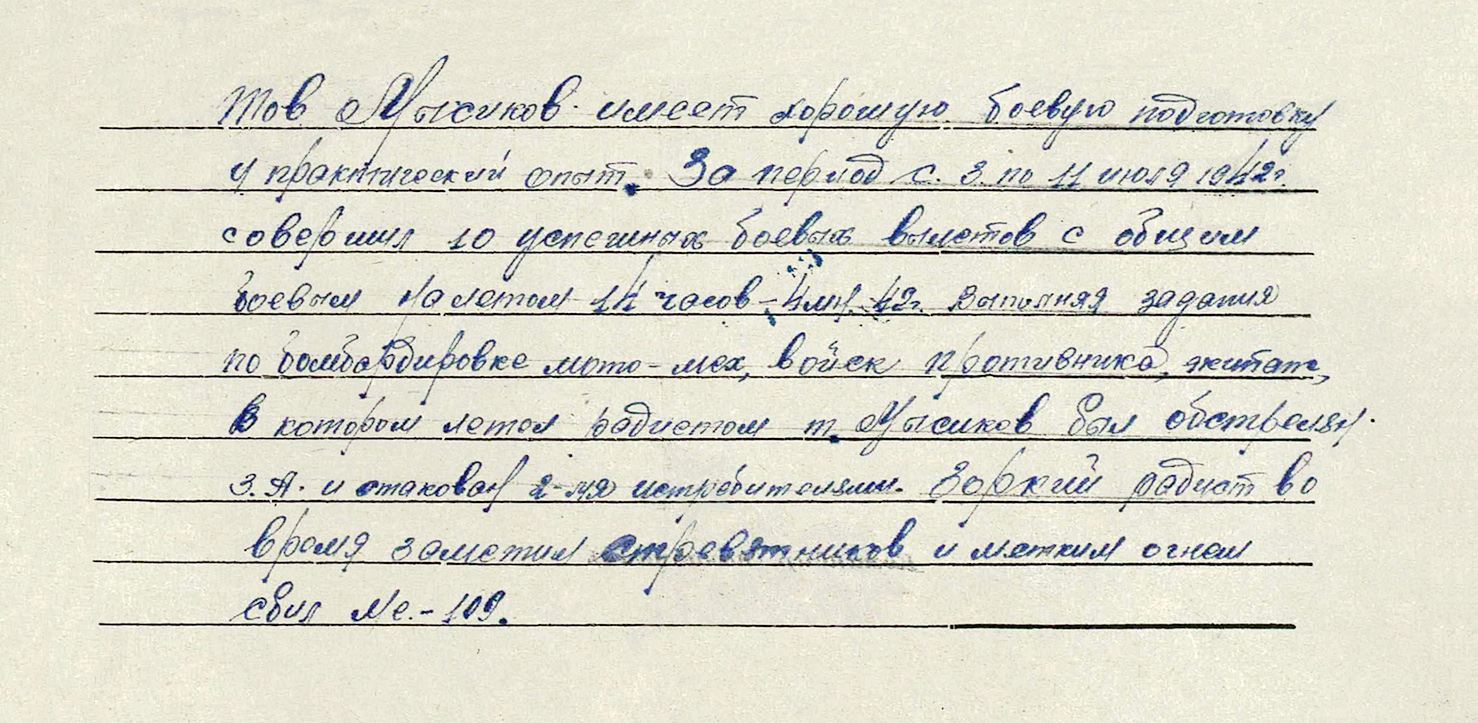 Тов Мысиков имеет хорошую боевую подготовку
и практический опыт. За период с. 3. по 11 июля 1942г.
совершил 10 успешных боевых вылетов с общим
боевым налетом 14 часов - 42г. Выполняя задания
по бомбардировке мото-мех, войск противника, экипаж,
в котором летал радистом т. Мысиков был обстрелян
З.А. и атакован 2-мя истребителями. Зоркий радист во
время заметил стревятников и метким огнем
сбил Ме.-109.